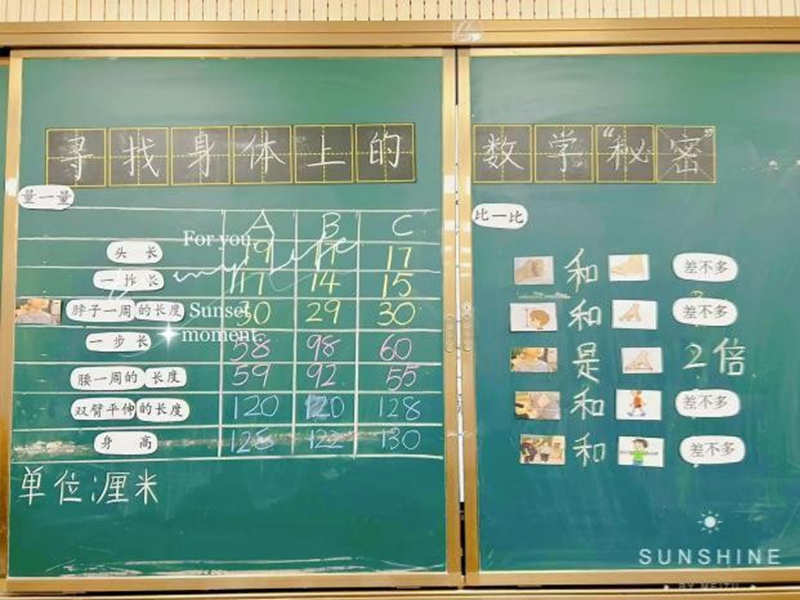 寻找身体上的数学“秘密”
量一量
A B C
头长 19 17
一拃长 17 14 15
脖子一周的长度 30 29 30
一步长 58 98 60
腰一周的长度 59 92 55
双臂平伸的长度 120 120 128
身高 128 122 130
单位:厘米
For you
my life
Sunset
moment
比一比
和 差不多
和 差不多
是 2倍
和 差不多
和 差不多
SUNSHINE